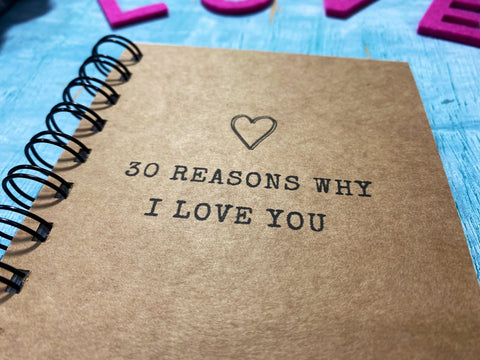 LOVE
30 REASONS WHY
I LOVE YOU